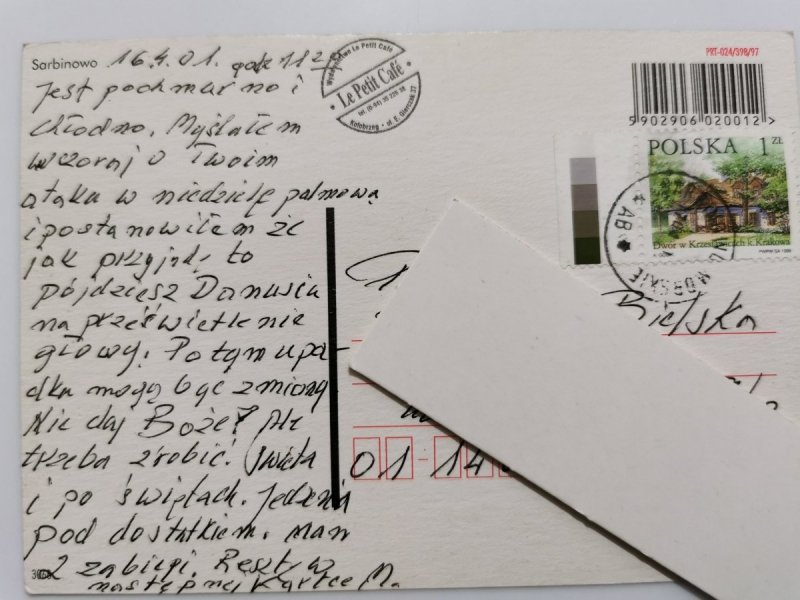 Sarbinowo 16.4.01. godz 11
Jest pochmurno i
chłodno. Myślałem
wczoraj o Twoim
ataku w niedzielę palmową
i postanowiłem że
jak przyjdę to
pójdziesz Danusiu
na prześwietlenie
głowy. Po tym upa-
dku mogą być zmiany
Nie daj Boże! Ale
trzeba zrobić. Święta
i po świętach. Jedzenia
pod dostatkiem. Mam
2 zabiegi. Resztę w
następnej kartce M.
Wydawnictwo Le Petit Café
Le Petit Café
Kołobrzeg
PRT-024/398/97
5 902906 020012 >
POLSKA 1 ZŁ
Dwór w Krzesławicach k. Krakowa
MORSKIE
* AB *
Bielska
01-14